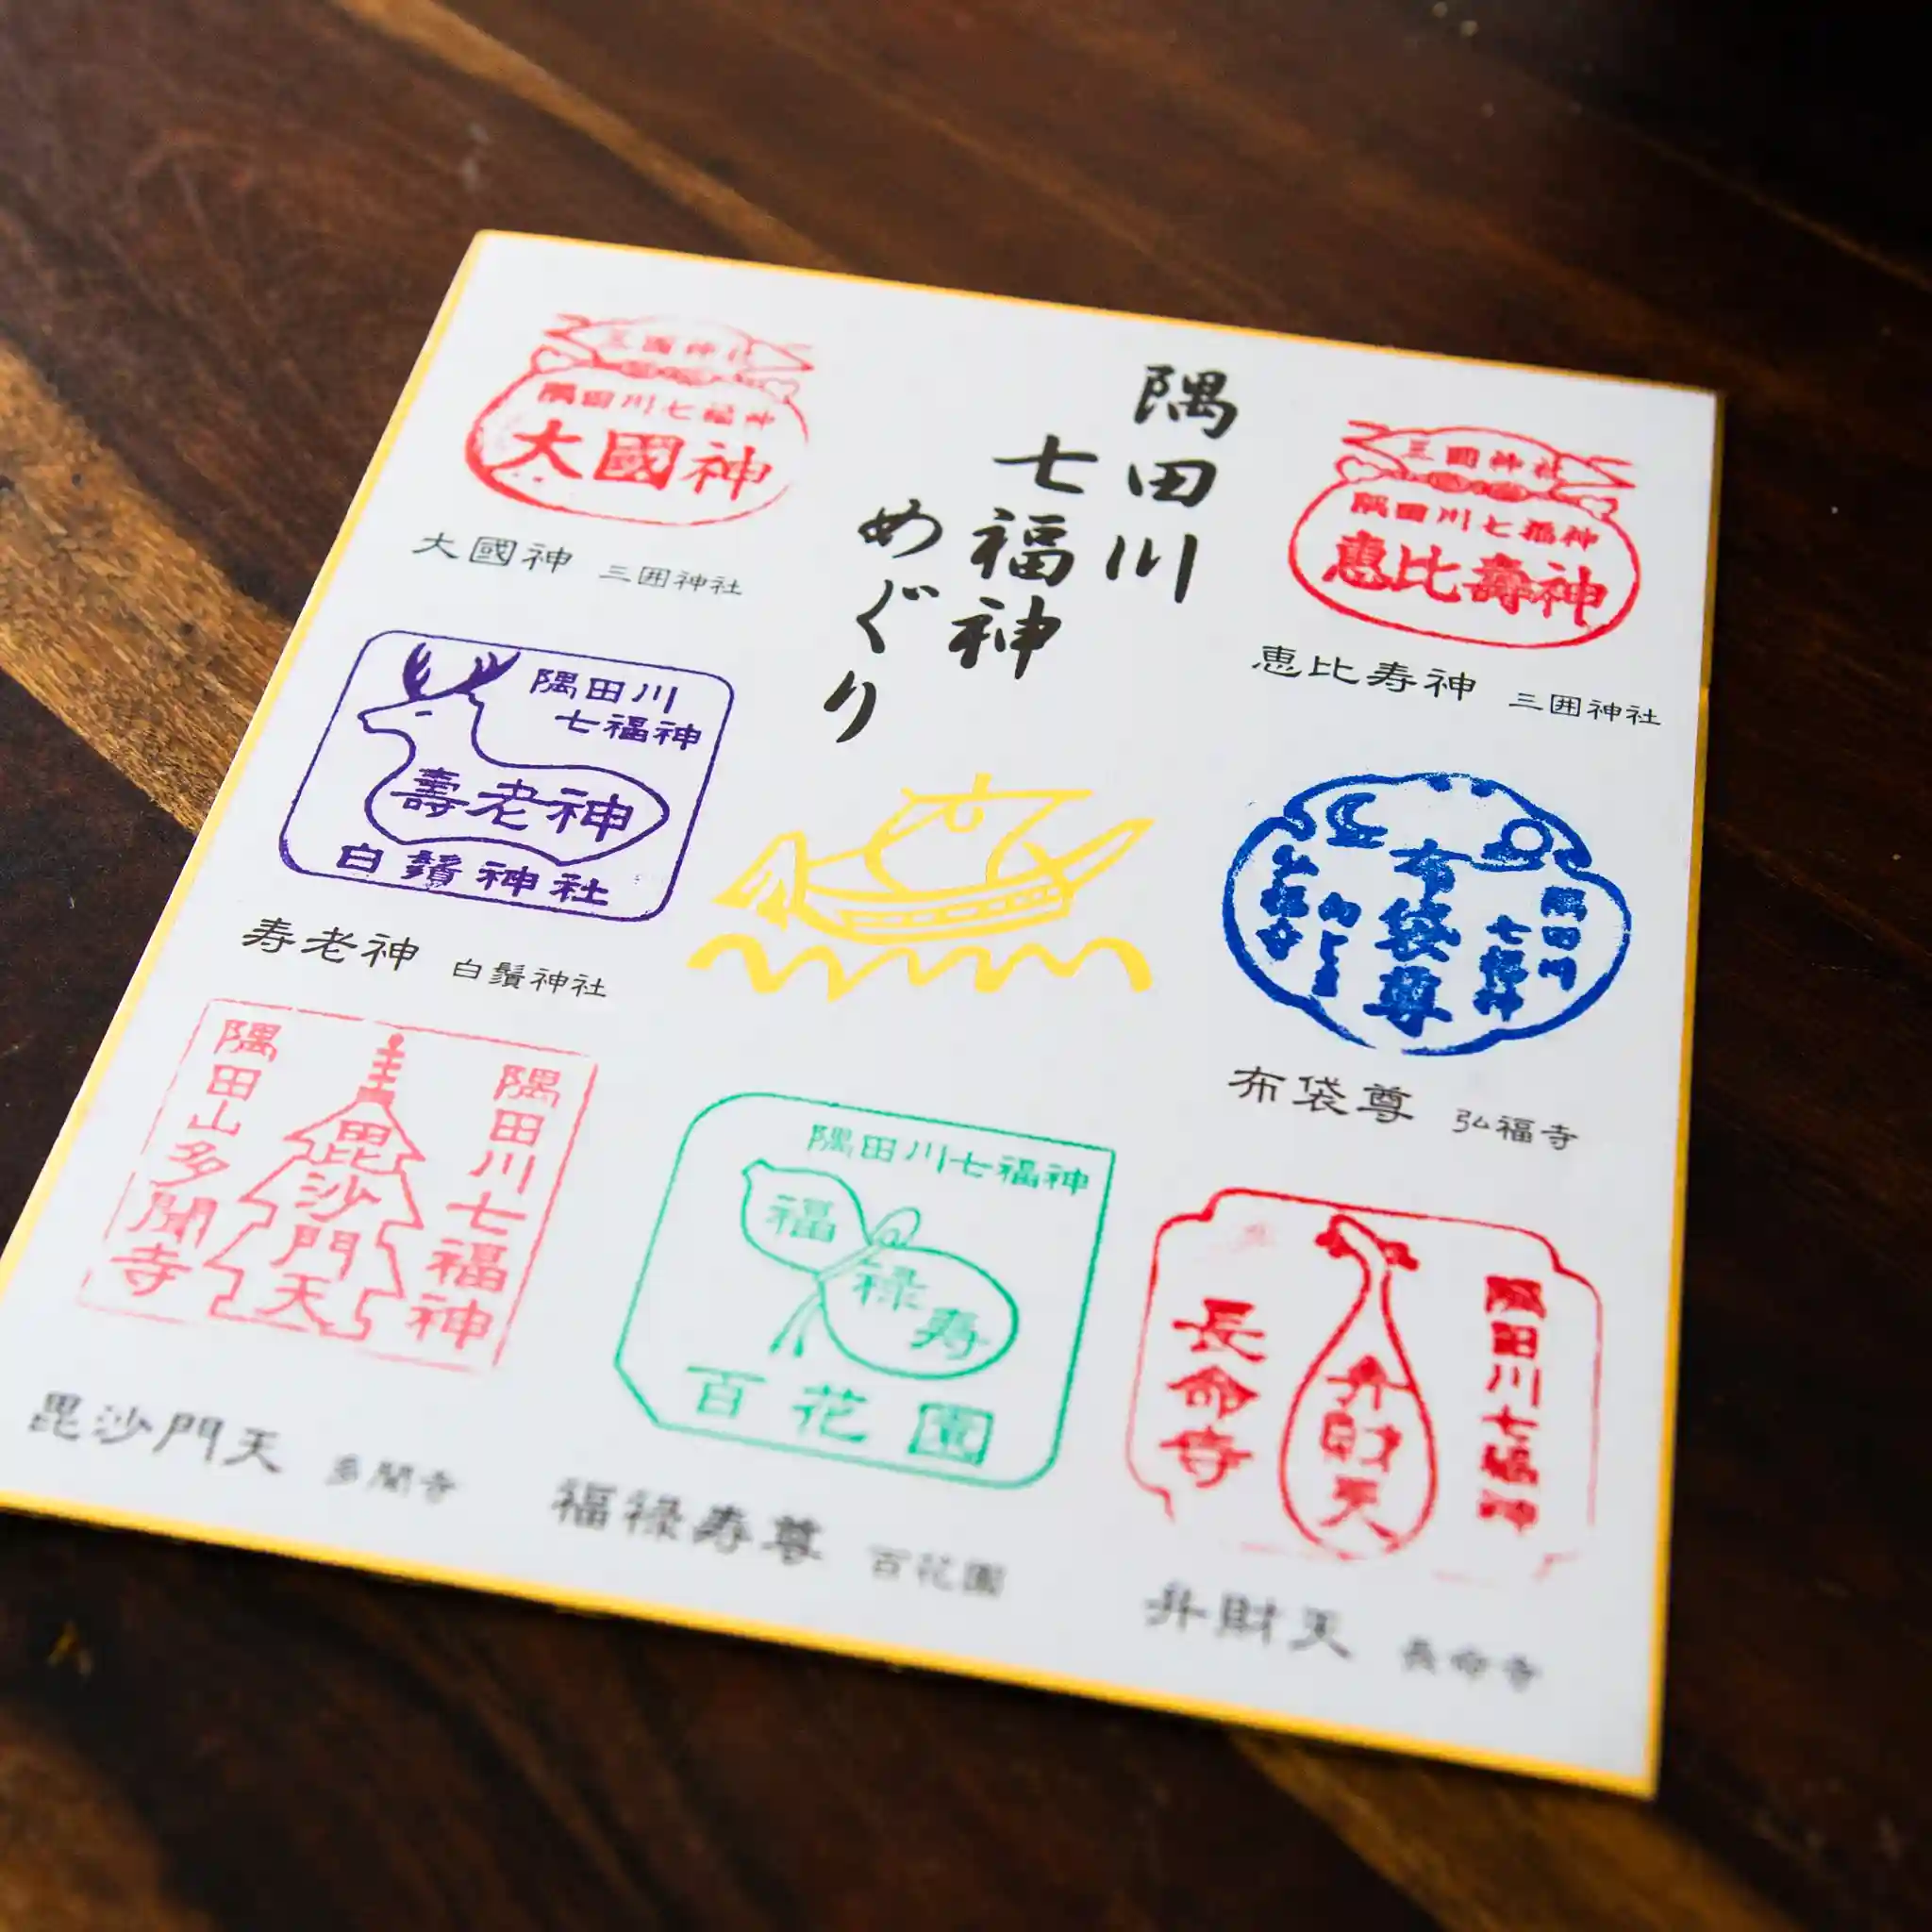 隅田川
七福神
めぐり
隅田川七福神
大國神
大國神 三囲神社
三圍神社
隅田川七福神
恵比壽神
恵比寿神 三囲神社
隅田川
七福神
壽老神
白鬚神社
寿老神 白鬚神社
隅田川
七福神
布袋尊
布袋尊 弘福寺
隅田川七福神
毘沙門天
隅田山多聞寺
毘沙門天 多聞寺
隅田川七福神
福
禄
寿
百花園
福禄寿尊 百花園
隅田川七福神
弁財天
長命寺
弁財天 長命寺